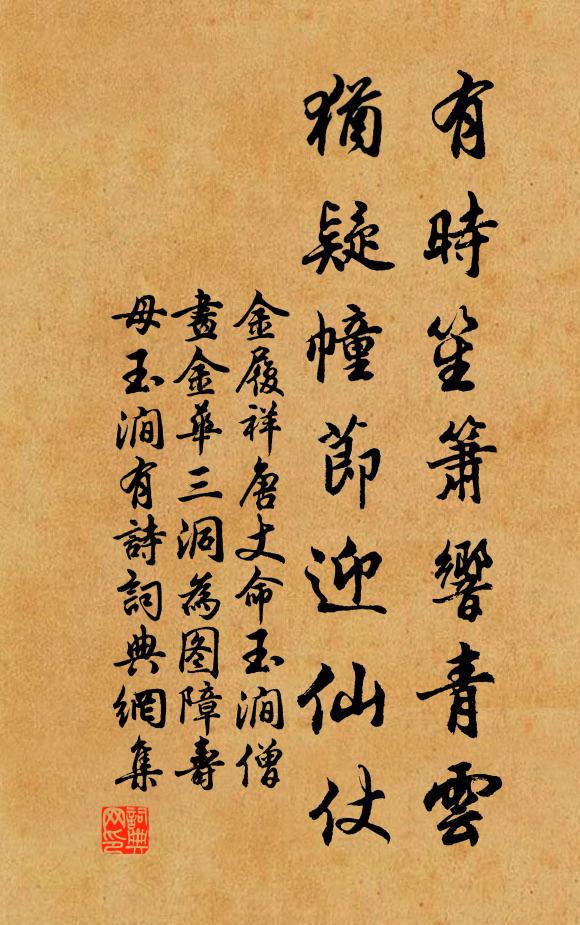 有時笙簫響青雲
猶疑幢節迎仙仗
金履祥唐丈命玉澗僧
畫金華三洞為图障壽
母玉澗有詩詞典網集
詞典
网印